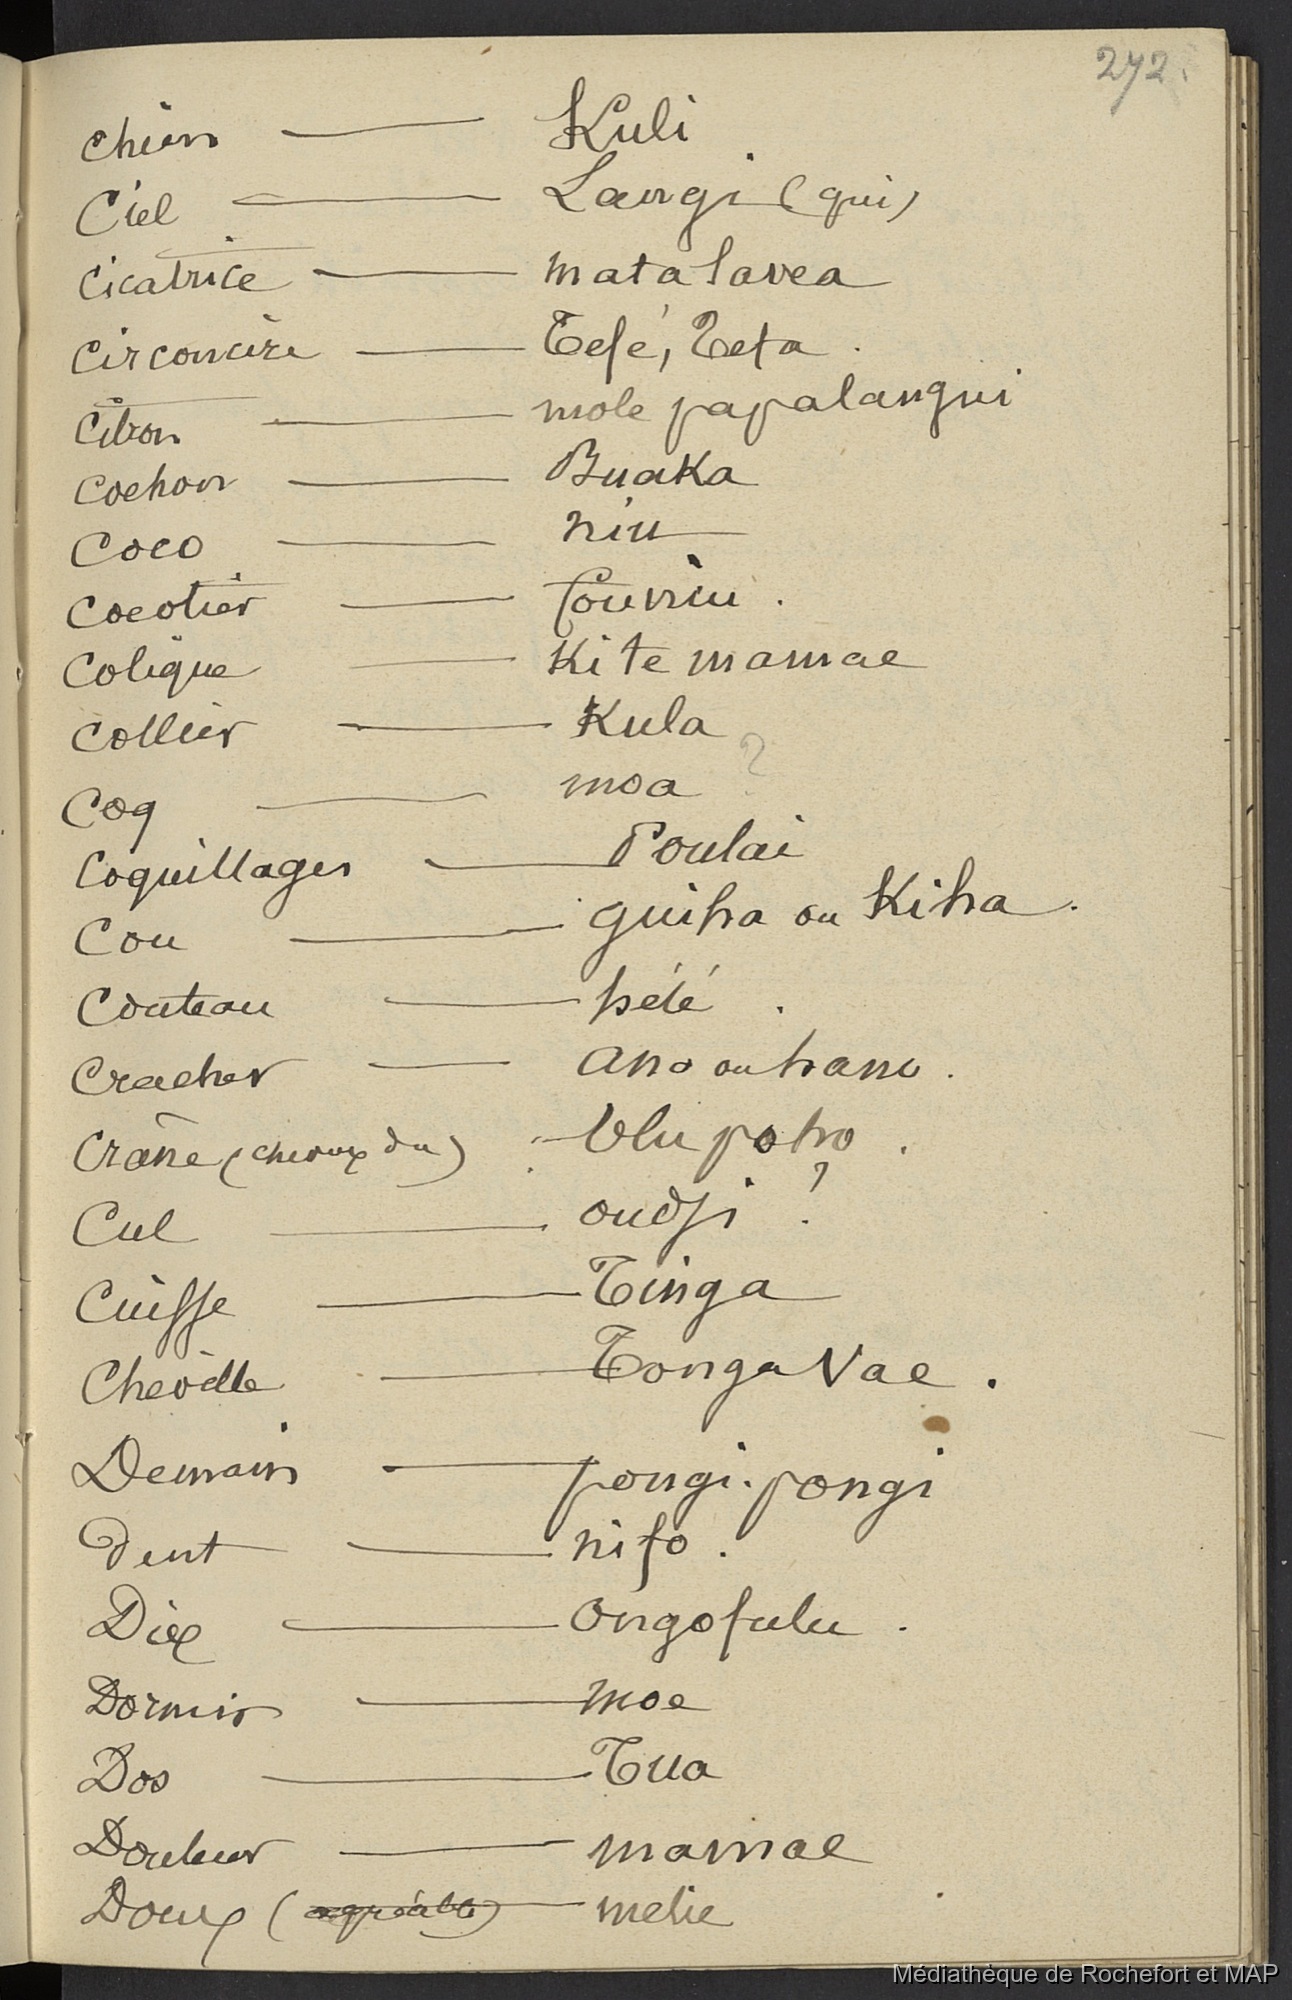 272.
Chien — Kuli
Ciel — Langi (gui)
Cicatrice — mata lavea
Circoncire — Tefé, Tefa.
Citron — mole papalangui
Cochon — Buaka
Coco — niu
Cocotier — founiu.
Colique — Kite mamae
Collier — Kula
Coq — moa ?
Coquillages — Poulai
Cou — guiha ou Kiha.
Couteau — hélé.
Cracher — ano ou hano.
Crâne (cheveux du) — Ulu poho.
Cul — oudji ?
Cuisse — Tenga
Cheville — Tonga Vae.
Demain — pongi-pongi
Dent — nifo.
Dix — ongofulu.
Dormir — moe
Dos — Tua
Douleur — mamae
Doux (agréable) — melie
Médiathèque de Rochefort et MAP